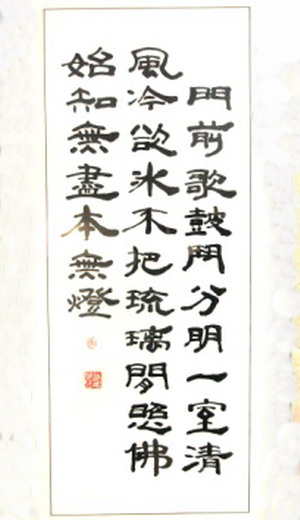 門前歌鼓鬥分明一室清
風冷欲氷不把琉璃閒照佛
始知無盡本無燈